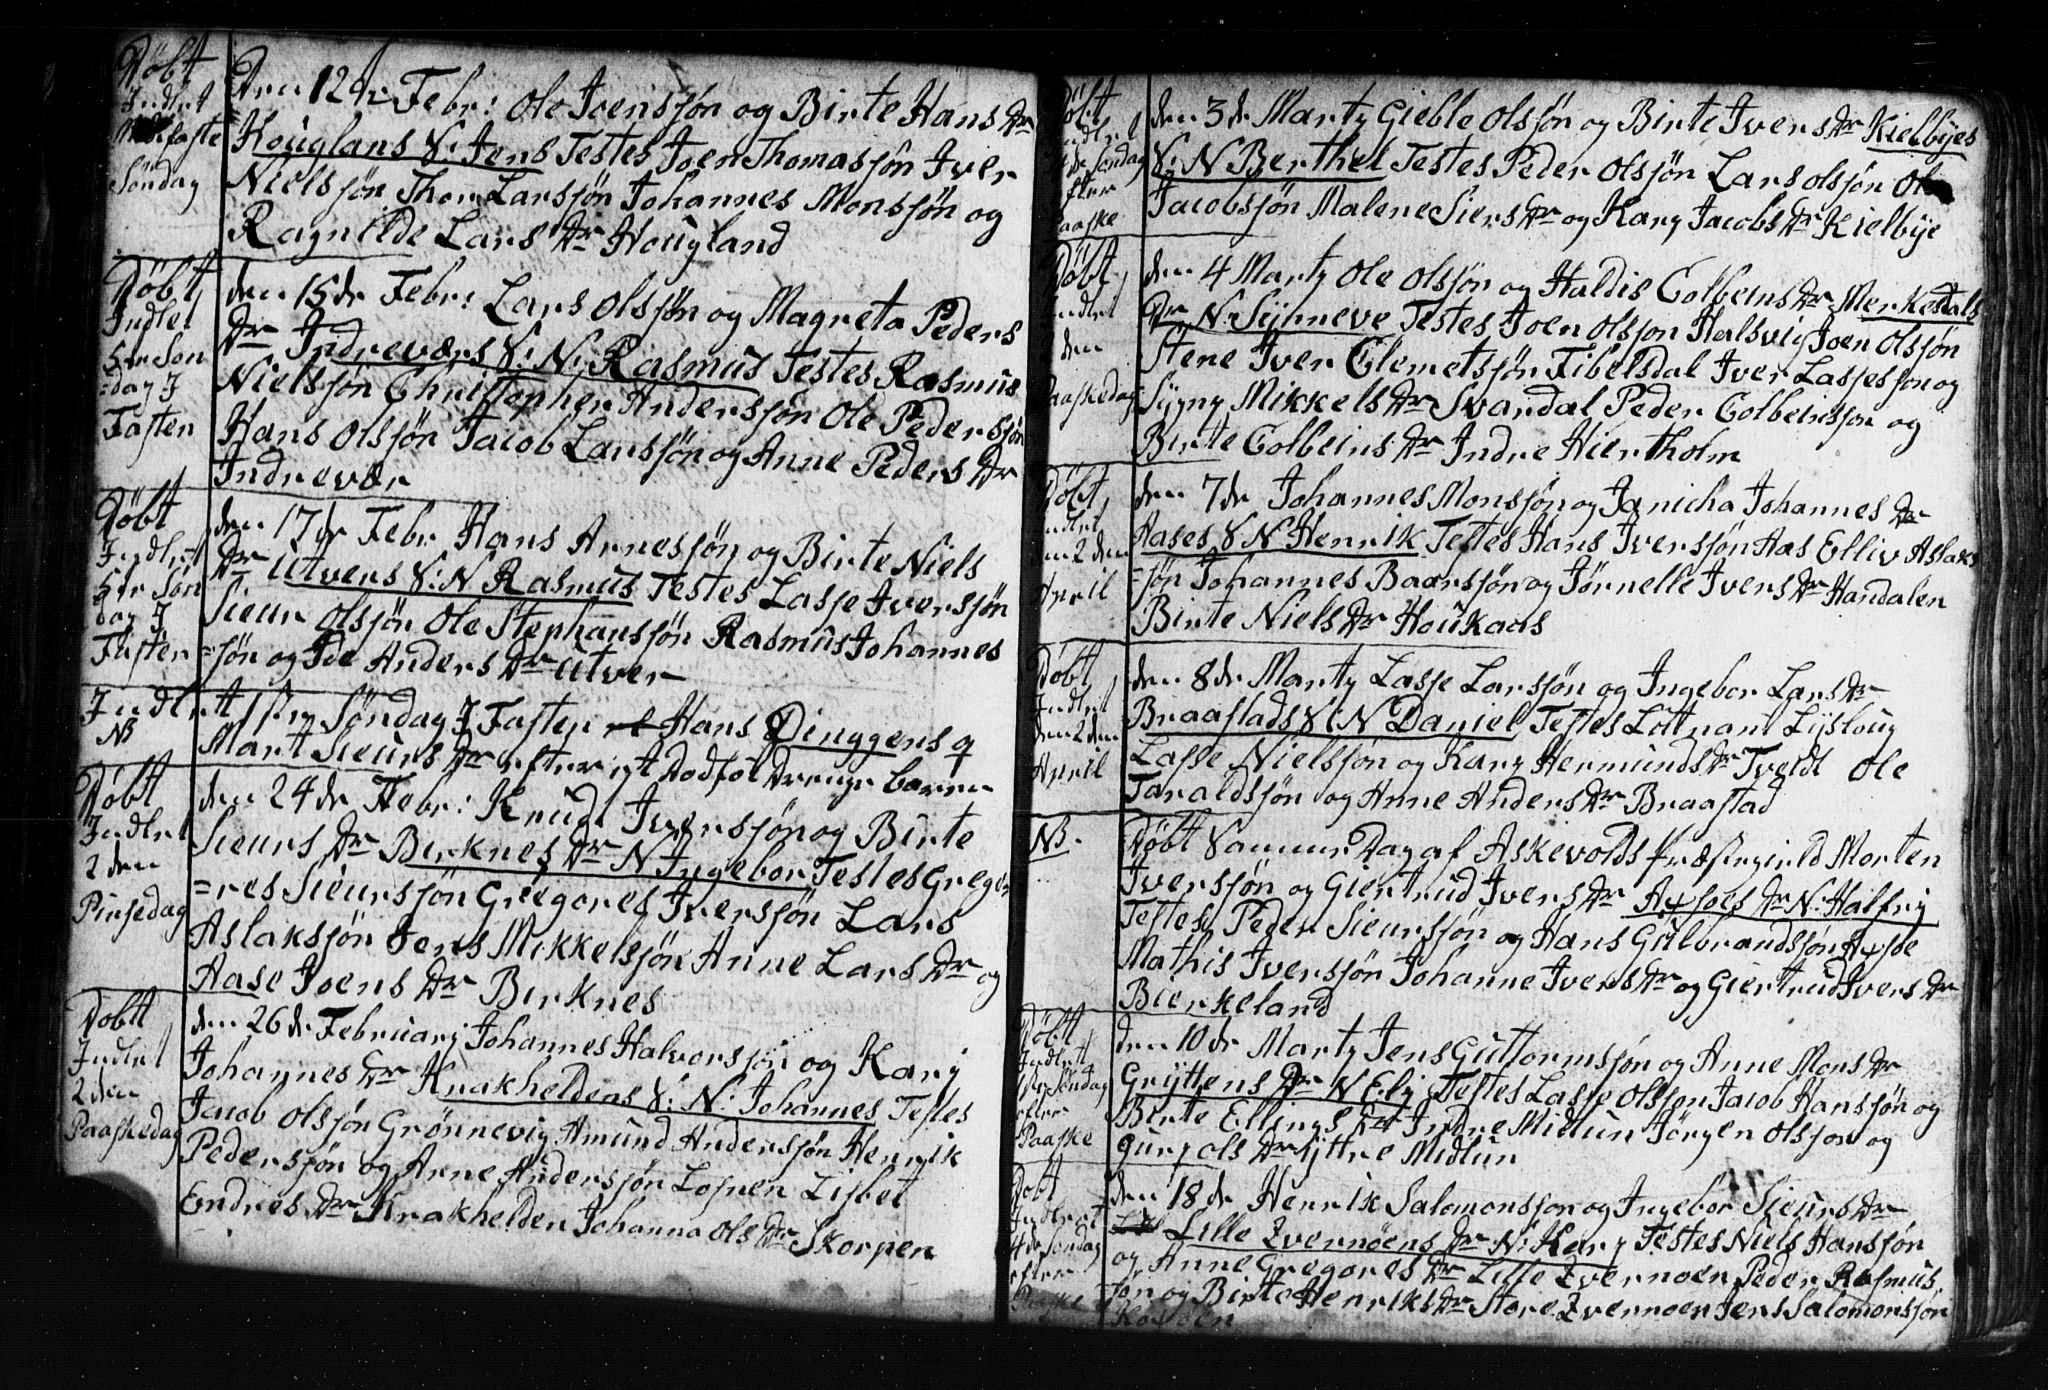 Döbt
Indlet
Midfaste
Söndag
Den 12te Febr: Ole Joensjön og Birte Hans Dr
Houglans S: Jens Testes Joen Thomasjön Iver
Nielsjön Thor Larsjön Johannes Monsjön og
Ragnilde Lars Dr Hougland
Döbt
Indlet
5te Sön
=dag I
Fasten
den 15de Febr: Lars Olsjön og Magreta Peders
Dr Indreværs S: N: Rasmus Testes Rasmus
Nielsjön Christopher Andersjön Ole Pedersjön
Hans Olsjön Jacob Larsjön og Anne Peders Dr
Indrevær
Döbt
Indlet
5te Sön
dag I
Fasten
den 17de Febr Hans Arnesjön og Birte Niels
Dr Utvers S: N Rasmus Testes Lasse Iversjön
Sieur Olsjön Ole Stephansjön Rasmus Johannes
=sjön og Anders Dr Utver
Indlet 1ste Söndag I Fasten Hans Dinggens q
NB
Mart Sieurs Dr efter et Dodföt Drenge barn
Döbt
Indlet
2den
Pinsedag
den 24de Febr: Knud Iversjön og Birte
Sieurs Dr Birknes Dr N Ingebor Testes Grego
=res Sieursjön Gregores Iversjön Lars
Aslaksjön Jens Mikkelsjön Anne Lars Dr og
Aase Joens Dr Birknes
Döbt
Indlet
2den
Paaskedag
den 26de February Johannes Halvorsjön og Kary
Johannes Dr Krakheldens S: N: Johannes Testes
Jacob Olsjön Grönnevig Amund Andersjön Henrik
Pedersjön og Arne Andersjön Losnen Lisbet
Endres Dr Krakhelden Johanna Ols Dr Skorpen
Döbt
Indlet
Söndag
efter
Paaske
den 3de Marty Gieble Olsjön og Birte Ivers Dr Kielbyes
S: N Berthel Testes Peder Olsjön Lars Olsjön Ole
Jacobsjön Malene Siers Dr og Kary Jacobs Dr Kielbye
Döbt
Indlet
den
Paaskedag
den 4 Marty Ole Olsjön og Haldis Colbeins Dr Merkesdals
Dr N: Synneve Testes Joen Olsjon Halsvig Joen Olsjön
Stene Iver Clemetsjön Fibelsdal Iver Lassesjon og
Sygny Mikkels Dr Svardal Peder Colbeinsjon og
Birte Colbeins Dr Indre Hiertholm
Döbt
Indlet
den 2den
April
den 7de Johannes Monsjön og Janicha Johannes Dr
Aases S N Henrik Testes Hans Iversjön Aas Elliv Aslak
=sjön Johannes Baarsjön og Jörnelle Ivers Dr Handalen
Birte Niels Dr Houkaas
Döbt
Indlet
den 2den
April
den 8de Marty Lasse Larsjön og Ingebor Lars Dr
Braastads S: N Daniel Testes Lottnant Lysloug
Lasse Nielsjön og Kary Hermunds Dr Tveldt Ole
Taraldsjön og Anne Anders Dr Braastad
NB.
Döbt Samme Dag af Askevolds Præstegield Morten
Iversjön og Giertrud Ivers Dr Axsoes Dr N: Halfry
Testes Peder Sieursjön og Hans Gulbrandsjön Axsoe
Mathis Iversjön Johanne Ivers Dr og Giertrud Ivers Dr
Bierkeland
Döbt
Indlet
1ste Söndag
efter
Paaske
den 10de Marty Jens Guttormsjön og Anne Mons Dr
Gryttens Dr N Ely Testes Lasse Olsjon Jacob Hansjön og
Birte Ellings Dr Indre Midtun Jörgen Olsjon og
Gury Ols Dr Yttre Midtun
Döbt
Indlet
4de Söndag
efter
Paaske
den 18de Henrik Salomonsjon og Ingebor Sieurs Dr
Lille Zvernöens Dr N: Kary Testes Niels Hansjön
og Anne Gregores Dr Lille Zvernoen Peder Rasmus
jön og Birte Henriks Dr Store Zvernoen Jens Salomonsjön